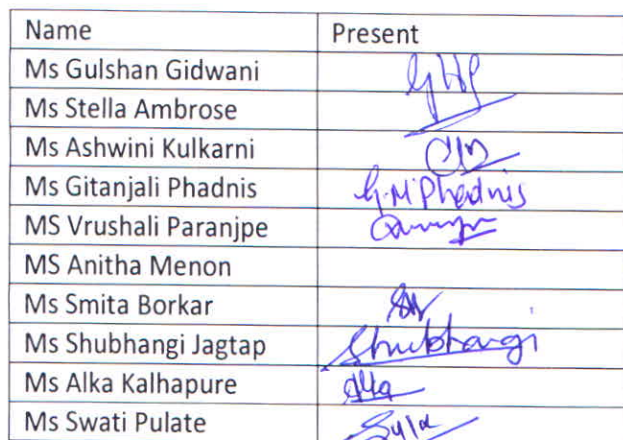 Name Present
Ms Gulshan Gidwani
Ms Stella Ambrose
Ms Ashwini Kulkarni
Ms Gitanjali Phadnis G.M Phadnis
MS Vrushali Paranjpe
MS Anitha Menon
Ms Smita Borkar
Ms Shubhangi Jagtap Shubhangi
Ms Alka Kalhapure Alka
Ms Swati Pulate